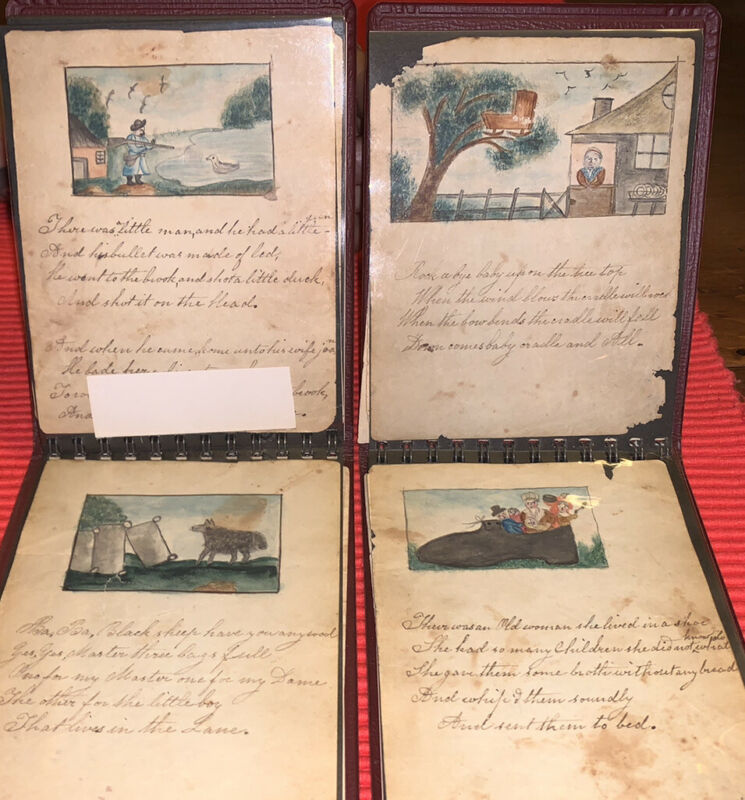 There was a little man, and he had a little gun
And his bullet was made of led,
He went to the brook, and shot a little duck,
And shot it on the Head.
And when he came home unto his wife
He bade her
brook,
And
Rock a bye baby up on the tree top
When the wind blows the cradle will rock
When the bow bends the cradle will fall
Down comes baby cradle and All.
Ba, Ba, Black sheep have you any wool
Yes, Yes, Master three bags full
One for my Master one for my Dame
The other for the little boy
That lives in the Lane.
There was an Old woman she lived in a shoe,
She had so many Children she did not know what
She gave them some broth without any bread
And whip'd them soundly
And sent them to bed.